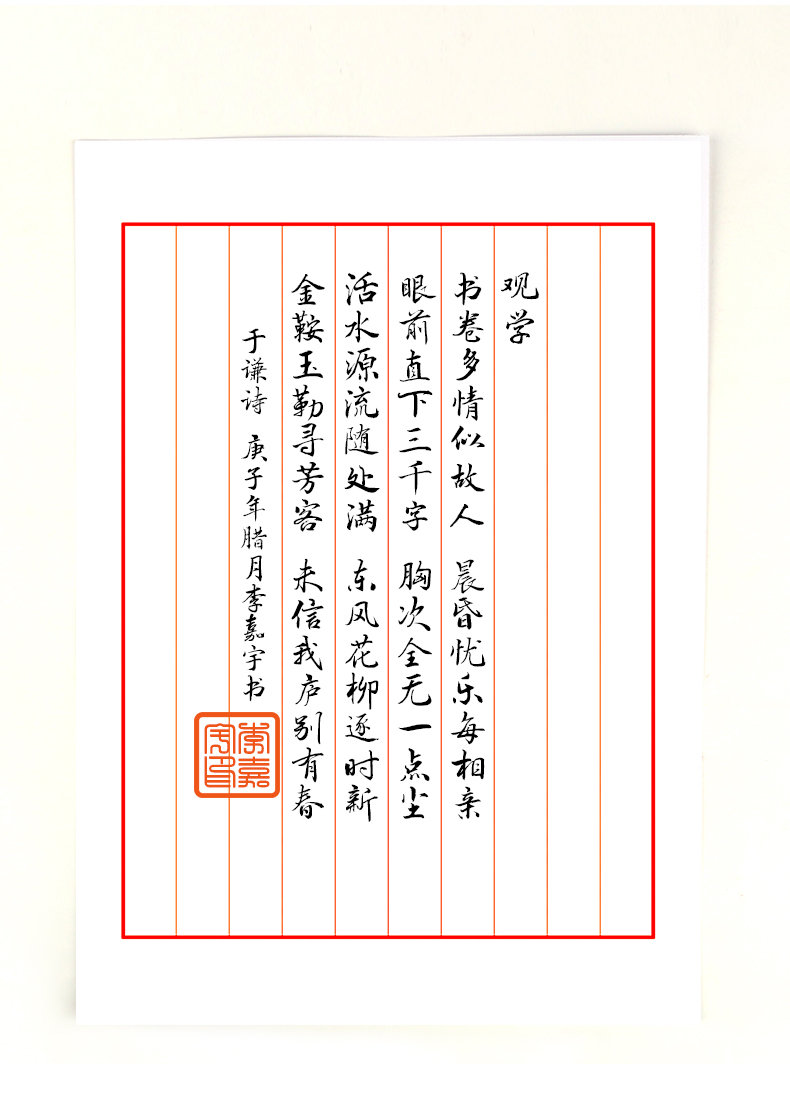 观学
书卷多情似故人 晨昏忧乐每相亲
眼前直下三千字 胸次全无一点尘
活水源流随处满 东风花柳逐时新
金鞍玉勒寻芳客 未信我庐别有春
于谦诗 庚子年腊月李嘉宇书
李嘉宇印